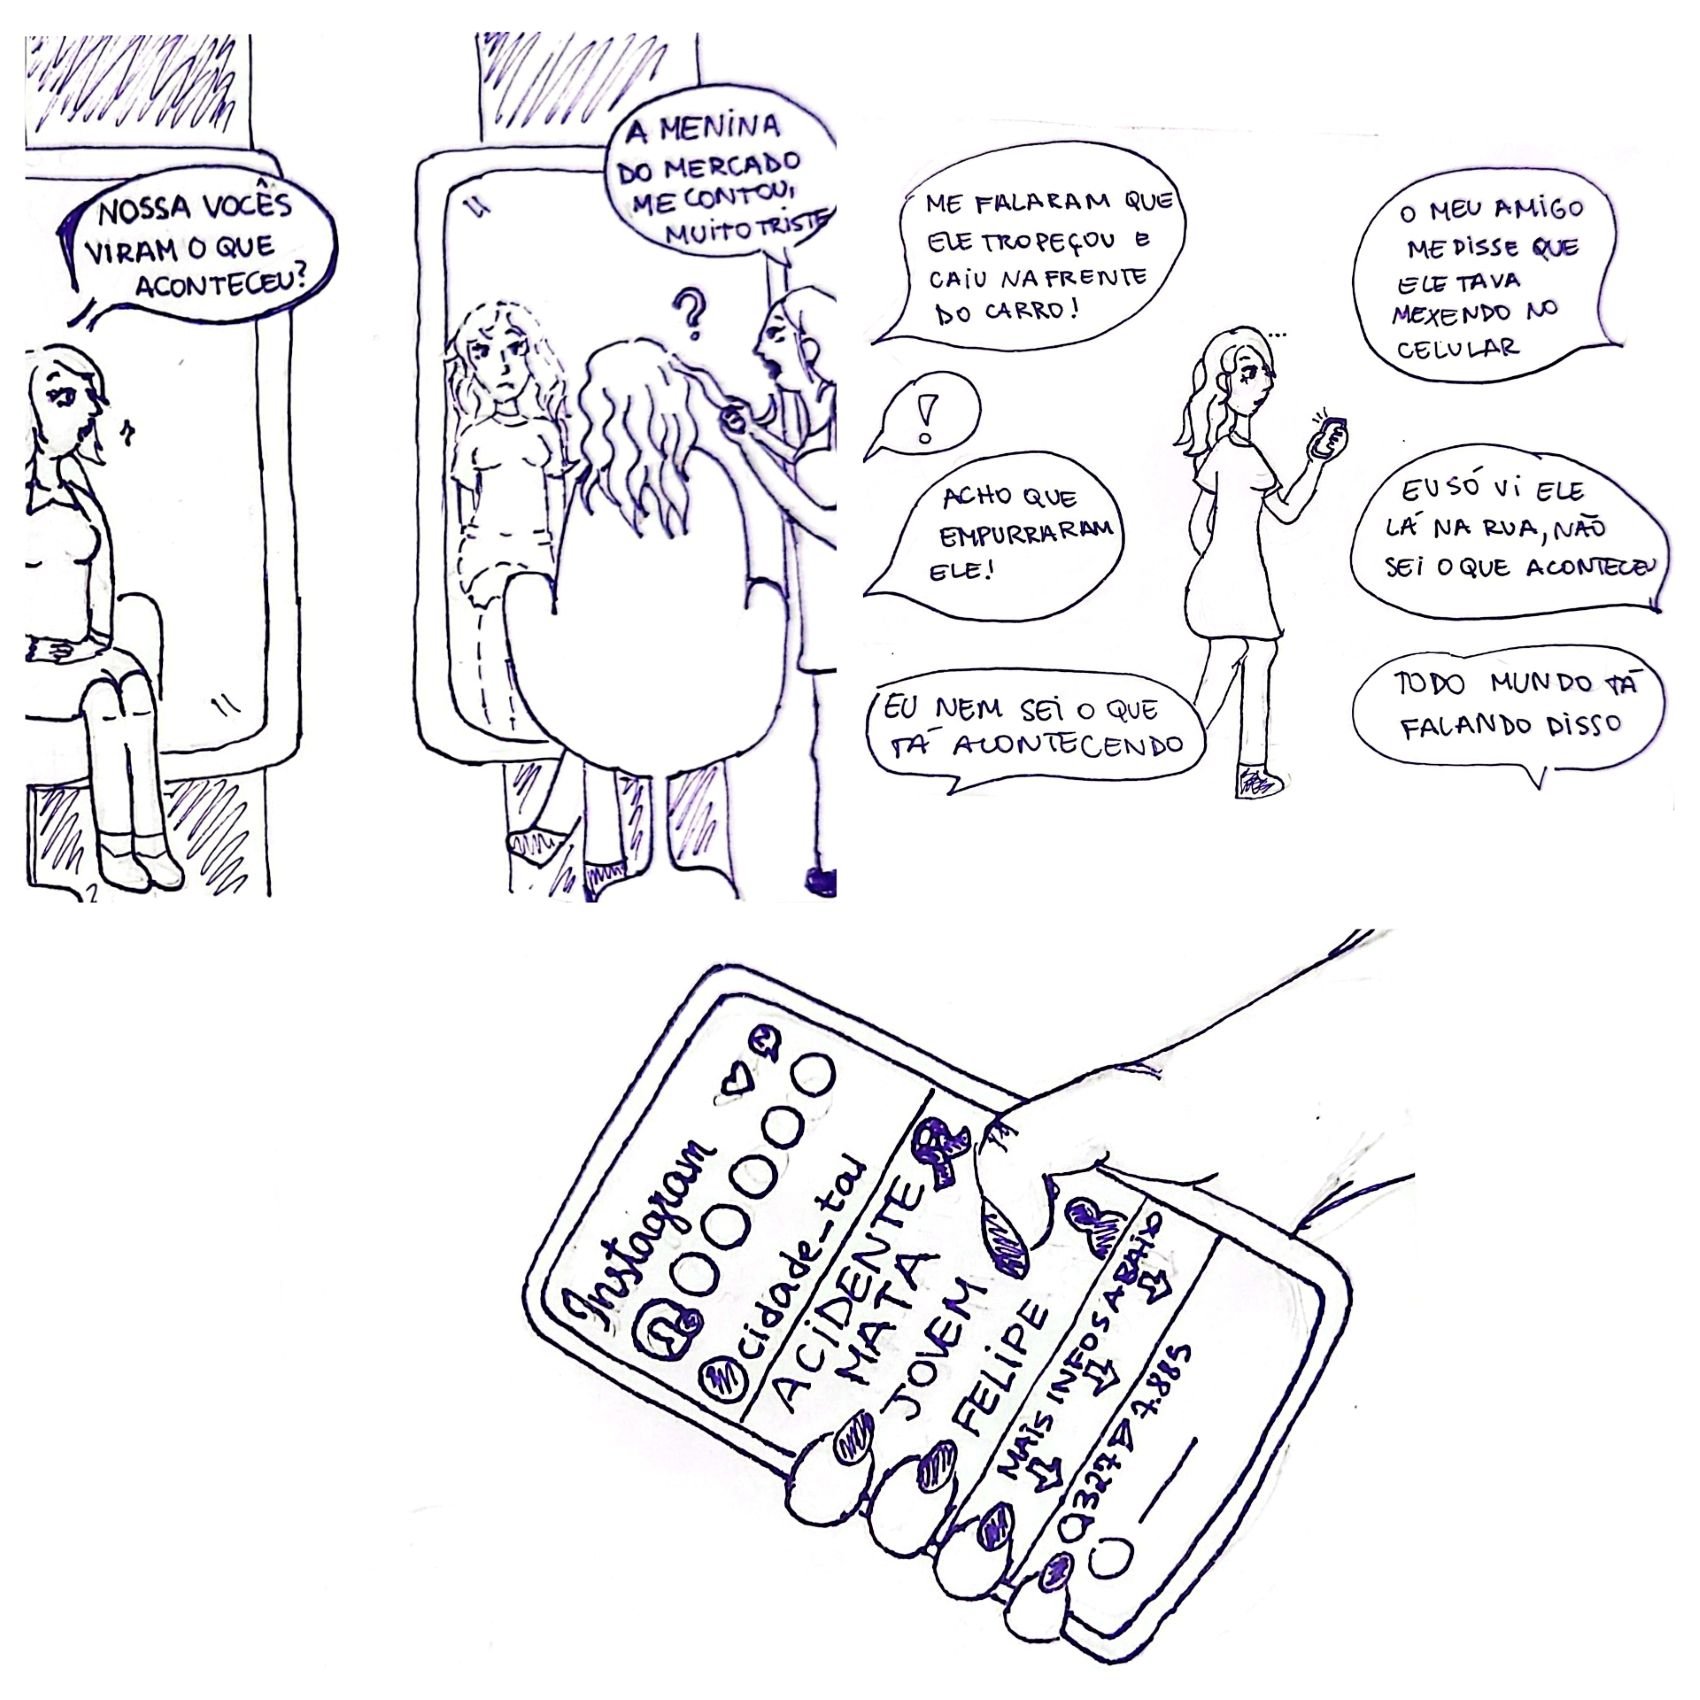 NOSSA VOCÊS
VIRAM O QUE
ACONTECEU?
A MENINA
DO MERCADO
ME CONTOU,
MUITO TRISTE
?
ME FALARAM QUE
ELE TROPEÇOU E
CAIU NA FRENTE
DO CARRO!
!
ACHO QUE
EMPURRARAM
ELE!
EU NEM SEI O QUE
TÁ ACONTECENDO
...
O MEU AMIGO
ME DISSE QUE
ELE TAVA
MEXENDO NO
CELULAR
EU SÓ VI ELE
LÁ NA RUA, NÃO
SEI O QUE ACONTECEU
TODO MUNDO TÁ
FALANDO DISSO
Instagram
cidade_tal
ACIDENTE
MATA
JOVEM
FELIPE
MAIS INFOS ABAIXO
327 7.885